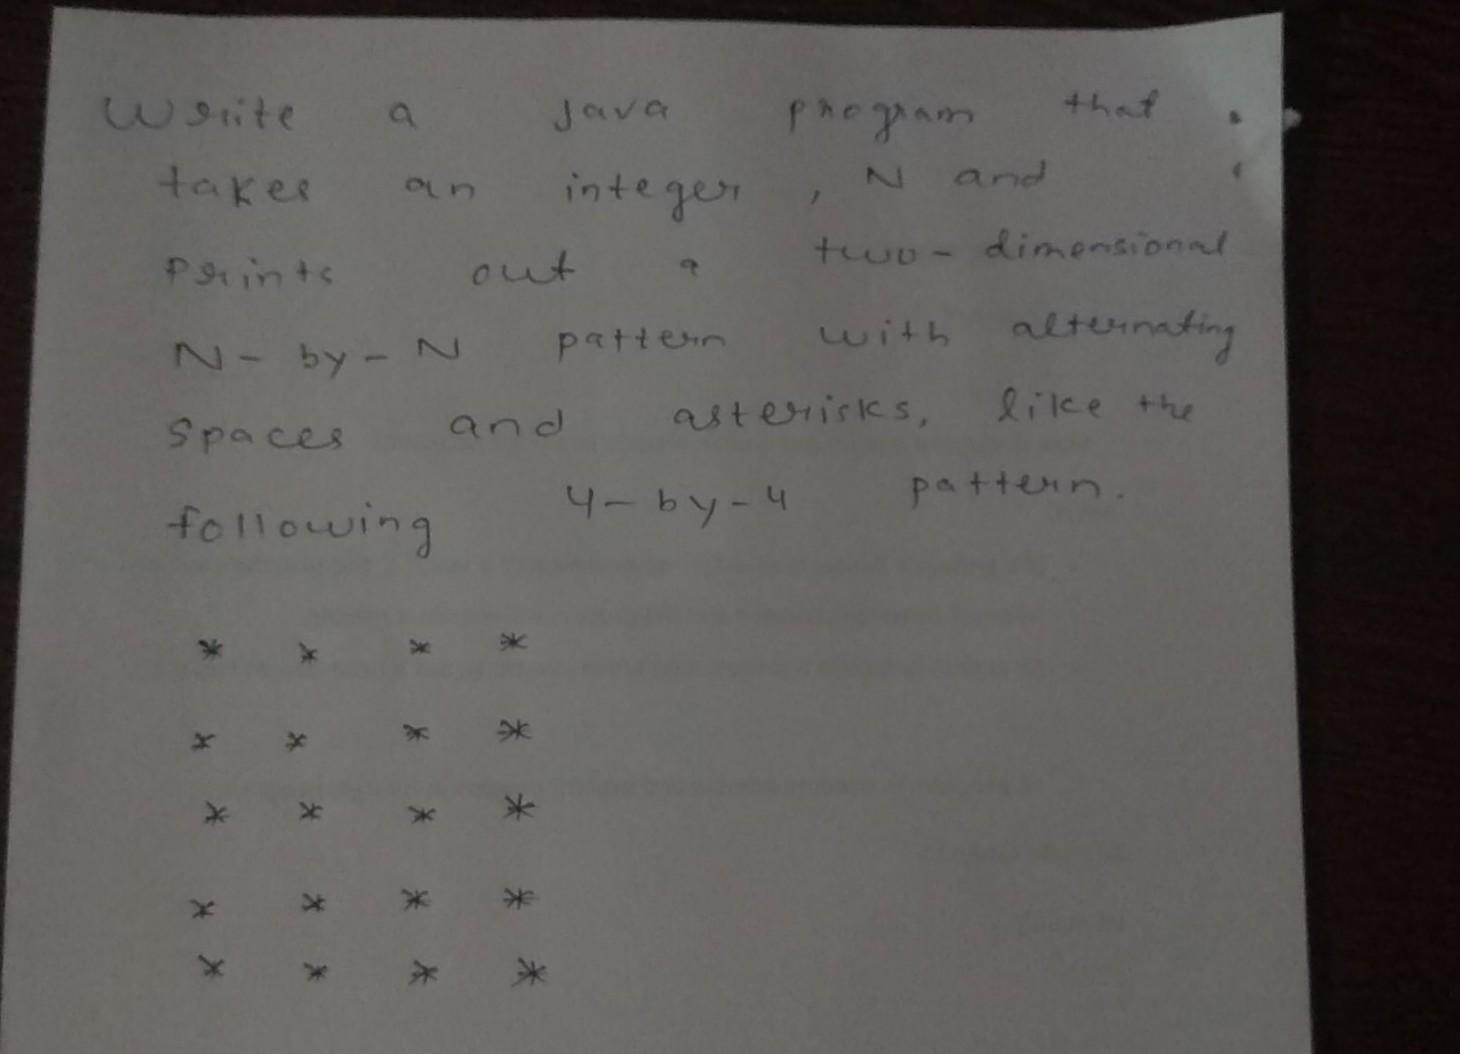 Write a Java program that
takes an integer, N and
Prints out a two-dimensional
N-by-N pattern with alternating
Spaces and asterisks, like the
following 4-by-4 pattern.
* * * *
* * * *
* * * *
* * * *
* * * *